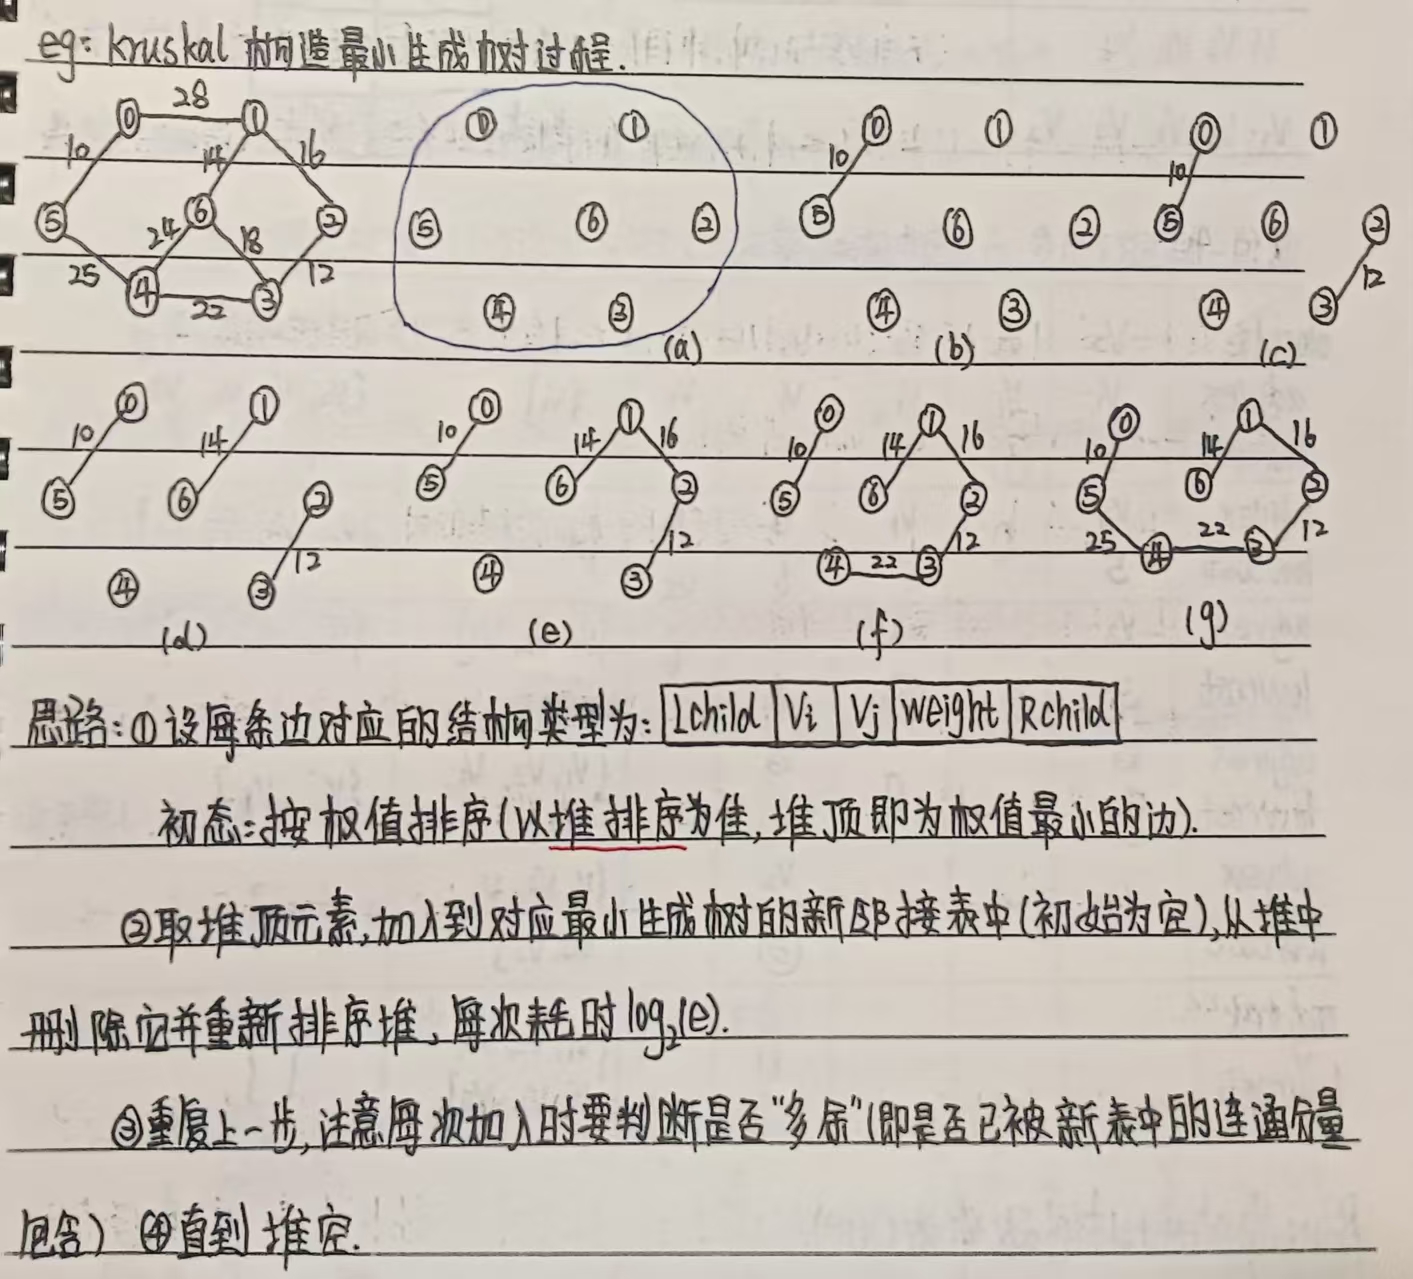 eg: kruskal 构造最小生成树过程.
28
⓪ ① ⓪ ① ⓪ ① ⓪ ①
10 14 16 10 10
⑤ ⑥ ② ⑤ ⑥ ② ⑤ ⑥ ② ⑤ ⑥ ②
24 18
25 12 12
④ 22 ③ ④ ③ ④ ③ ④ ③
(a) (b) (c)
⓪ ① ⓪ ① ⓪ ① ⓪ ①
10 14 10 14 16 10 14 16 10 14 16
⑤ ⑥ ② ⑤ ⑥ ② ⑤ ⑥ ② ⑤ ⑥ ②
12 12 12 25 22 12
④ ③ ④ ③ ④ 22 ③ ④ ③
(d) (e) (f) (g)
思路:①设每条边对应的结构类型为: Lchild Vi Vj weight Rchild
初态:按权值排序(以堆排序为佳,堆顶即为权值最小的边).
②取堆顶元素,加入到对应最小生成树的新邻接表中(初始为空),从堆中
删除它并重新排序堆,每次耗时log₂(e).
③重复上一步,注意每次加入时要判断是否"多余"(即是否已被新表中的连通分量
包含) ④直到堆空.